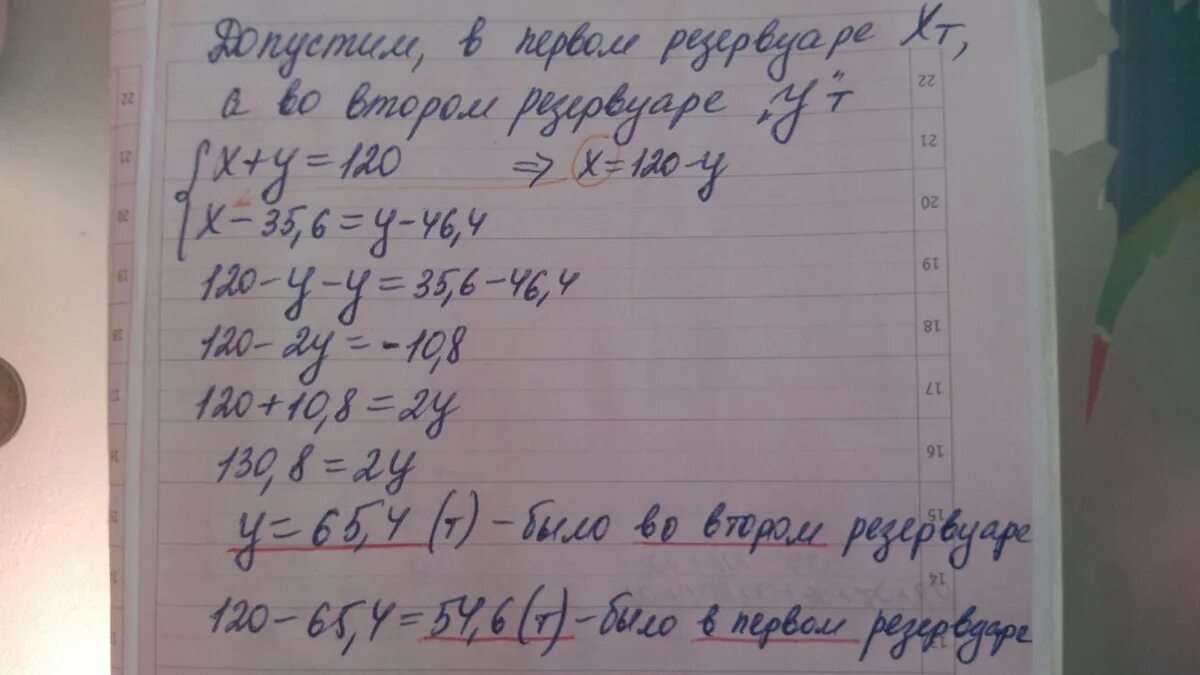 Допустим, в первом резервуаре Xт,
а во втором резервуаре „y" т
{x+y=120 => x=120-y
x-35,6=y-46,4
120-y-y=35,6-46,4
120-2y=-10,8
120+10,8=2y
130,8=2y
y=65,4 (т) - было во втором резервуаре
120-65,4=54,6(т) - было в первом резервуаре
22
21
20
19
18
17
16
15
14
13
22
21
20
19
18
17